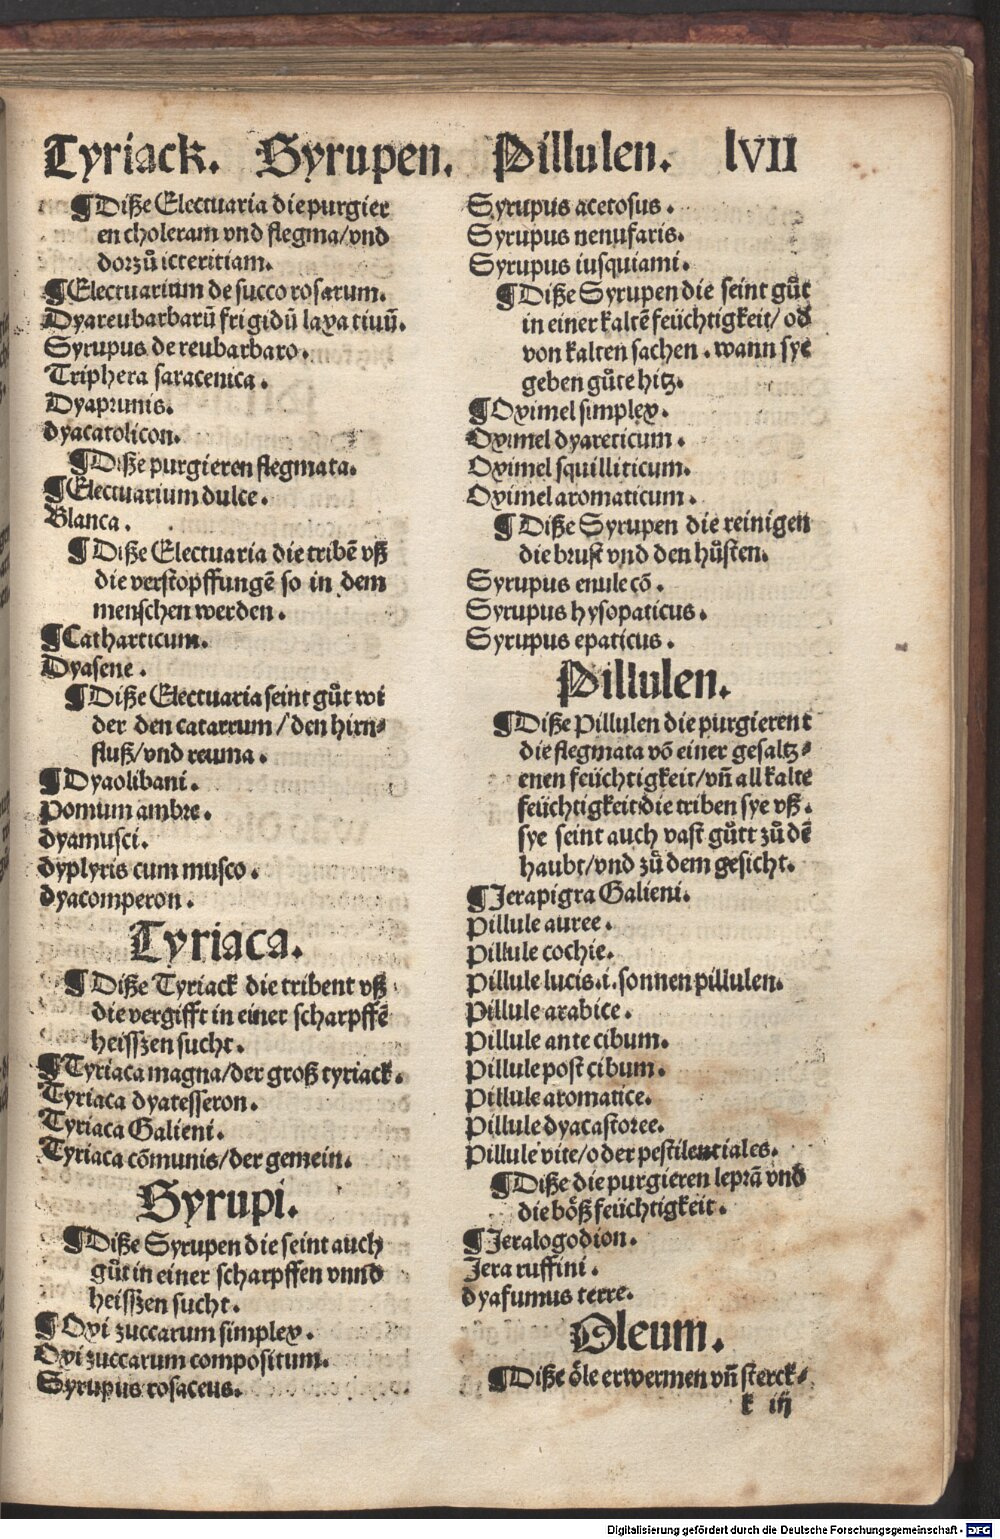 Tyriack. Syrupen. Pillulen. lVII
¶ Diße Electuaria die purgier
en choleram vnd flegma/vnd
dorzů icteritiam.
¶ Electuarium de succo rosarum.
Dyareubarbarū frigidū laxatiuū.
Syrupus de reubarbaro.
Triphera saracenica.
Dyaprunis.
dyacatolicon.
¶ Diße purgieren flegmata.
¶ Electuarium dulce.
Blanca.
¶ Diße Electuaria die tribē vß
die verstopffungē so in dem
menschen werden.
¶ Catharticum.
Dyasene.
¶ Diße Electuaria seint gůt wi
der den catarrum/den hirn⸗
fluß/vnd reuma.
¶ Dyaolibani.
Pomum ambre.
dyamusci.
dyplyris cum musco.
dyacomperon.
Tyriaca.
¶ Diße Tyriack die tribent vß
die vergifft in einer scharpffē
heissẓen sucht.
¶ Tyriaca magna/der groß tyriack.
Tyriaca dyatesseron.
Tyriaca Galieni.
Tyriaca cōmunis/der gemein.
Syrupi.
¶ Diße Syrupen die seint auch
gůt in einer scharpffen vnnd
heissẓen sucht.
¶ Oxi zuccarum simplex.
Oxi zuccarum compositum.
Syrupus rosaceus.
Syrupus acetosus.
Syrupus nenufaris.
Syrupus iusquiami.
¶ Diße Syrupen die seint gůt
in einer kaltē feüchtigkeit/od
von kalten sachen. wann sye
geben gůte hitz.
¶ Oximel simplex.
Oximel dyareticum.
Oximel squilliticum.
Oximel aromaticum.
¶ Diße Syrupen die reinigen
die brust vnd den hůsten.
Syrupus enule cō.
Syrupus hysopaticus.
Syrupus epaticus.
Pillulen.
¶ Diße Pillulen die purgierent
die flegmata vō einer gesaltz⸗
enen feüchtigkeit/vn̄ all kalte
feüchtigkeit die triben sye vß.
sye seint auch vast gůtt zů dē
haubt/vnd zů dem gesicht.
¶ Jerapigra Galieni.
Pillule auree.
Pillule cochie.
Pillule lucis.i.sonnen pillulen.
Pillule arabice.
Pillule ante cibum.
Pillule post cibum.
Pillule aromatice.
Pillule dyacastoree.
Pillule vite/oder pestilentiales.
¶ Diße die purgieren leprā vnd
die böß feüchtigkeit.
¶ Jeralogodion.
Jera ruffini.
dyafumus terre.
Oleum.
¶ Diße öle erwermen vn̄ sterck⸗
k iij
Digitalisierung gefördert durch die Deutsche Forschungsgemeinschaft - DFG